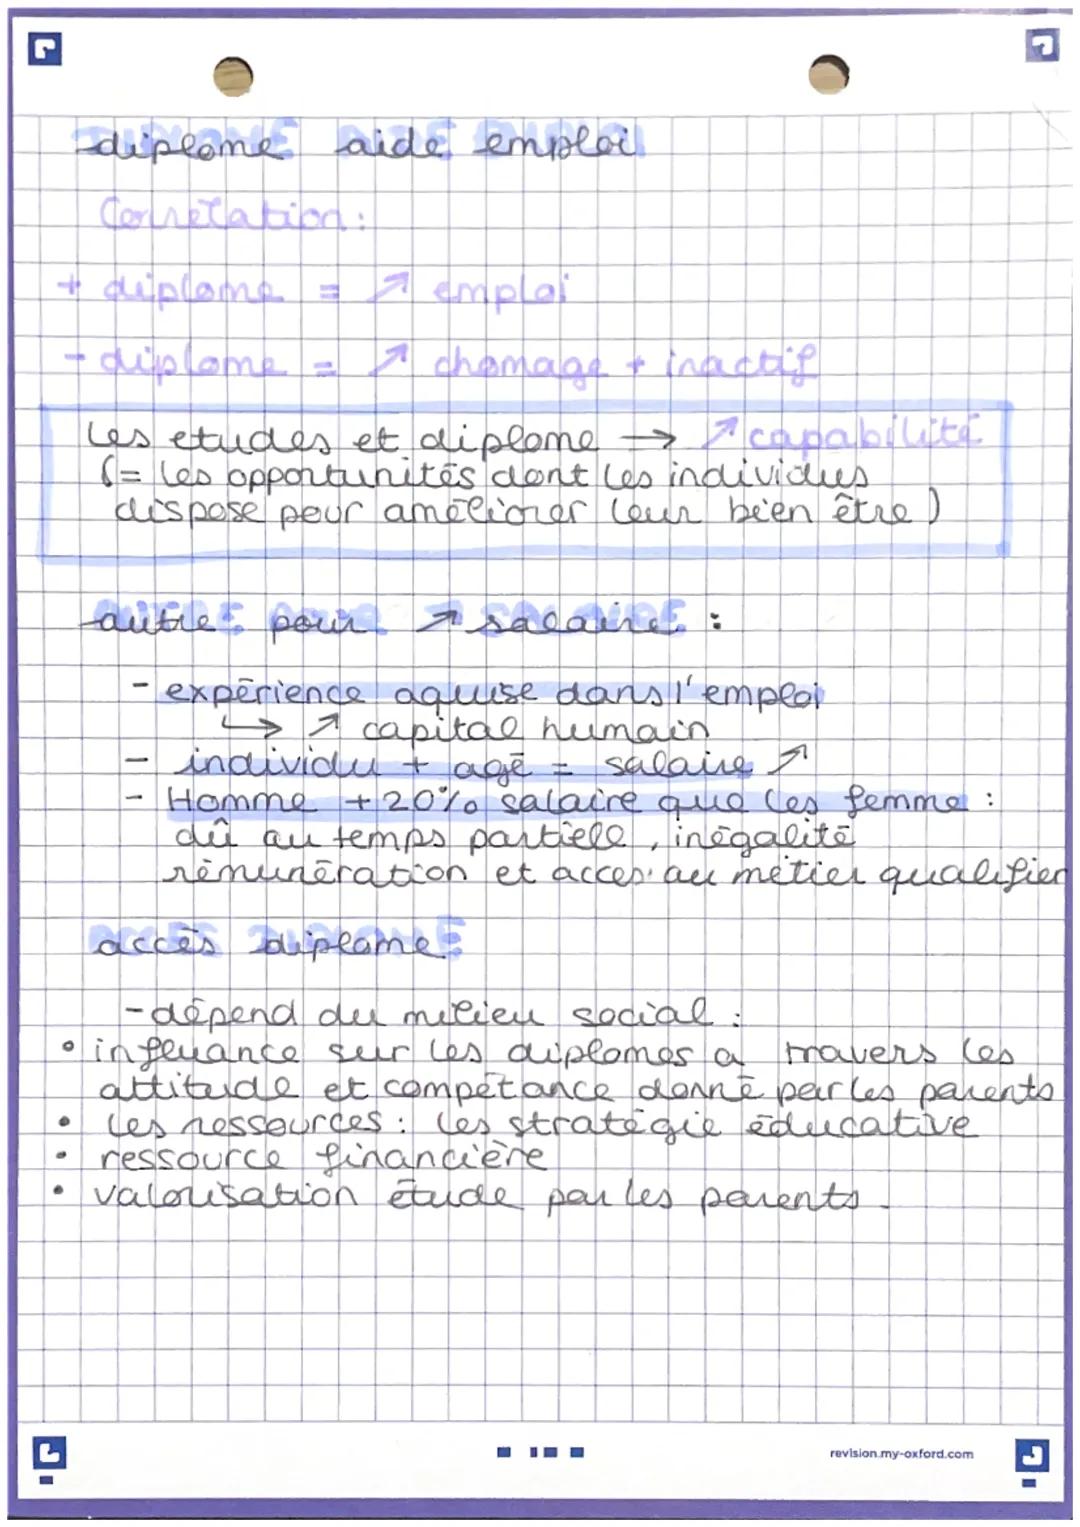 diplome aide emploi
Correlation :
+ diplome = ↗ emploi
- diplome = ↗ chomage + inactif
Les etudes et diplome → ↗ capabilité
(= les opportunités dont les individus
dispose pour améliorer leur bien être)
autre pour ↗ salaire :
- expérience aquise dans l'emploi
↳ ↗ capital humain
- individu + agé = salaire ↗
- Homme +20% salaire que les femme :
dû au temps partiell, inégalité
rémunération et acces au métier qualifier
accés diplome
- dépend du milieu social :
• influance sur les diplomes a travers les
attitude et compétance donné par les parents
• les ressources : les stratégie éducative
• ressource financière
• valorisation étude par les parents.
revision.my-oxford.com